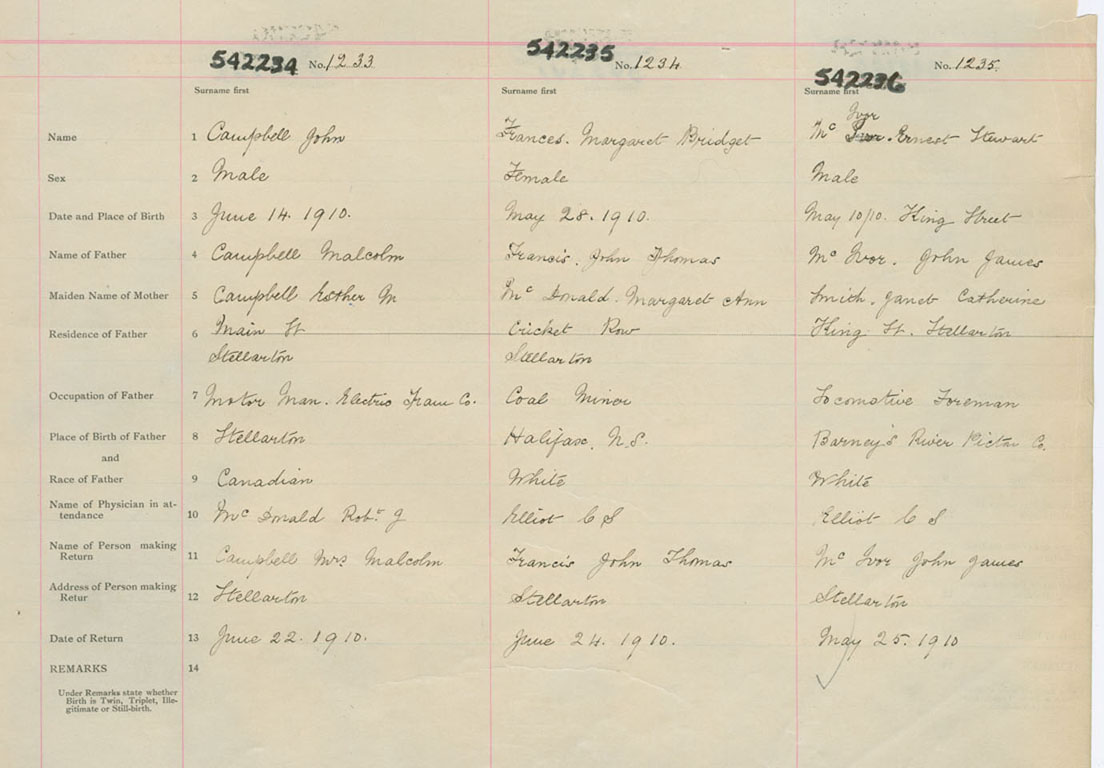 542234 No. 1233 542235 No. 1234 542236 No. 1235.
Surname first Surname first Surname first
Ivor
Name 1 Campbell John Frances. Margaret Bridget Mc Ivor. Ernest Stewart
Sex 2 Male Female Male
Date and Place of Birth 3 June 14. 1910. May 28. 1910. May 10/10. King Street
Name of Father 4 Campbell Malcolm Francis. John Thomas Mc Ivor. John James
Maiden Name of Mother 5 Campbell Esther M Mc Donald. Margaret Ann Smith. Janet Catherine
Residence of Father 6 Main St Cricket Row King St. Stellarton
Stellarton Stellarton
Occupation of Father 7 Motor Man. Electric Tram Co. Coal Miner Locomotive Foreman
Place of Birth of Father 8 Stellarton Halifax, N.S. Barney's River Pictou Co.
and
Race of Father 9 Canadian White White
Name of Physician in at-
tendance 10 Mc Donald Robt J Elliot C S Elliot C S
Name of Person making
Return 11 Campbell Mrs Malcolm Francis John Thomas Mc Ivor John James
Address of Person making
Retur 12 Stellarton Stellarton Stellarton
Date of Return 13 June 22. 1910. June 24. 1910. May 25. 1910
REMARKS 14
Under Remarks state whether
Birth is Twin, Triplet, Ille-
gitimate or Still-birth.